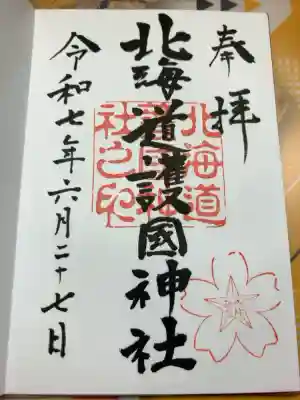 奉拝
北海道護國神社
北海道護國神社之印
令和七年六月二十七日